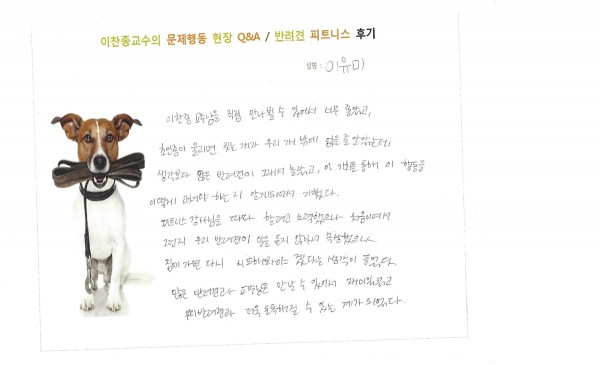 이찬종교수의 문제행동 현장 Q&A / 반려견 피트니스 후기
성명 : 이유미
이찬종 교수님을 직접 만나뵐 수 있어서 너무 좋았고,
초인종이 울리면 짖는 개가 우리 개 밖에 없을 줄 알았는데
생각보다 많은 반려견이 그래서 놀랐고, 이 기회를 통해 이 행동을
어떻게 해야 하는 지 알게되어서 기뻤다.
피트니스 강사님을 따라 하려고 노력했으나 처음이어서
그런지 우리 반려견이 말을 듣지 않아서 속상했으나
집에 가면 다시 시도해봐야 겠다는 생각이 들었다.
많은 반려견과 교수님을 만날 수 있어서 재미있었고
반려견과 더욱 돈독해질 수 있는 계기가 되었다.